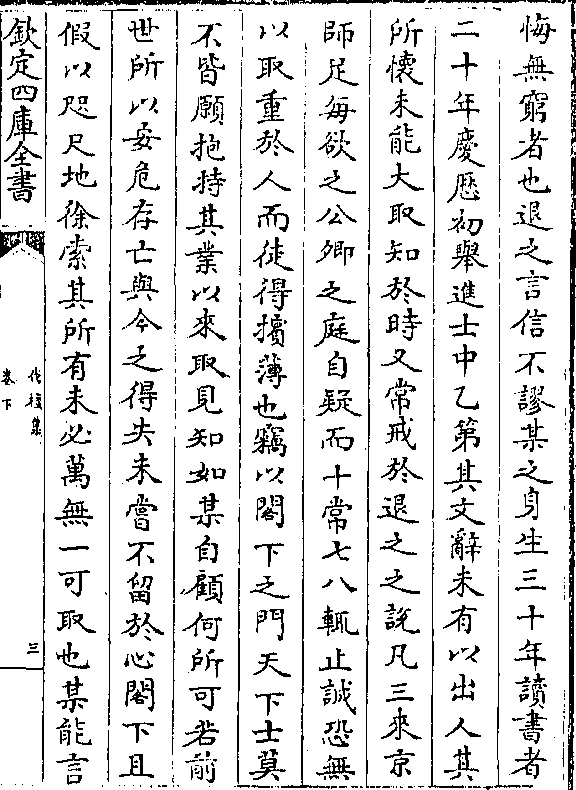 悔無窮者也退之言信不謬某之身生三十年讀書者
二十年慶歷初舉進士中乙第其文辭未有以出人其
所懷未能大取知於時又常戒於退之之說凡三來京
師足每欲之公卿之庭自疑而十常七八輒止誠恐無
以取重於人而徒得擯薄也竊以閣下之門天下士莫
不皆願抱持其業以來取見知如某自顧何所可若前
世所以安危存亡與今之得失未嘗不留於心閣下且
假以咫尺地徐索其所有未必萬無一可取也某能言
欽定四庫全書
伐檀集
卷下
三